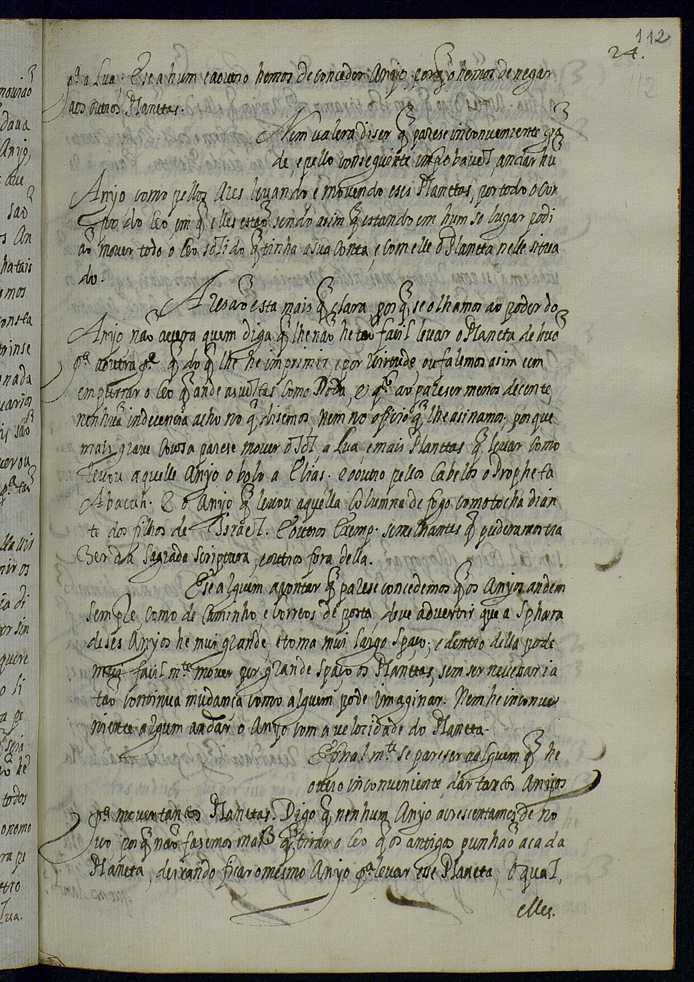 112
24.
pª a Lua. E se a hum e a outro hemos de conceder Anjo, porq̃ o hemos de negar
aos outros Planetas.
Nem valera diser q̃ parese inconveniente gra
de, e pello conseguinte, andar hũ
Anjo como pellos Ares levando e movendo eses Planetas, por todo o Cor
po do Ceo em q̃ elles estaõ, sendo asim q̃ estando em hum so lugar podi
aõ mover todo o Ceo solido q̃ tinha a sua conta, e com elle o Planeta nelle situa
do.
A resaõ esta mais q̃ clara, porq̃ se olhamos ao poder do
Anjo naõ avera quem diga q̃ lhe naõ he taõ facil levar o Planeta de hũa
pª outra pᵉ q̃ do q̃ lhe he imprimir, por Virtude ou falemos asim com
empurrar o Ceo q̃ ande as voltas como Roda, E qᵗᵒ ao pareser menos decente,
nenhuã indecencia acho no q̃ disemos, nem no oficio q̃ lhe asinamos, porque
mais grave cousa parese mover o Sol, a Lua, e mais Planetas q̃ levar como
levou aquelle Anjo o bolo a Elias. e outro pellos Cabellos o Propheta
Abacuh. E o Anjo q̃ levou aquella Columna de fogo como tocha dian
te dos filhos de Israel. E outros Exemp. semelhantes q̃ pudera mostra
da Sagrada Scriptura, e outros fora della.
E se alguem apontar q̃ parese concedemos q̃ os Anjos andem
sempre como de Caminho e Correos de posta, deve advertir que a Sphæra
deses Anjos he mui grande, e toma mui largo Spaço, e dentro della pode
mui facil mᵗᵉ mover por grande Spaço os Planetas, sem ser necesaria
taõ continua mudança como alguem pode imaginar. Nem he inconve
niente algum andar o Anjo com a velocidade do Planeta.
E final mᵗᵉ se pareser a alguem q̃ he
outro inconveniente dar tantos Anjos
pª mover tantos Planetas. Digo q̃ nenhum Anjo acresentamos de no
vo porq̃ naõ fasemos mais q̃ tirar o Ceo q̃ os antigos punhaõ a cada
Planeta, deixando ficar o mesmo Anjo pª levar ese Planeta, o qual,
elles.